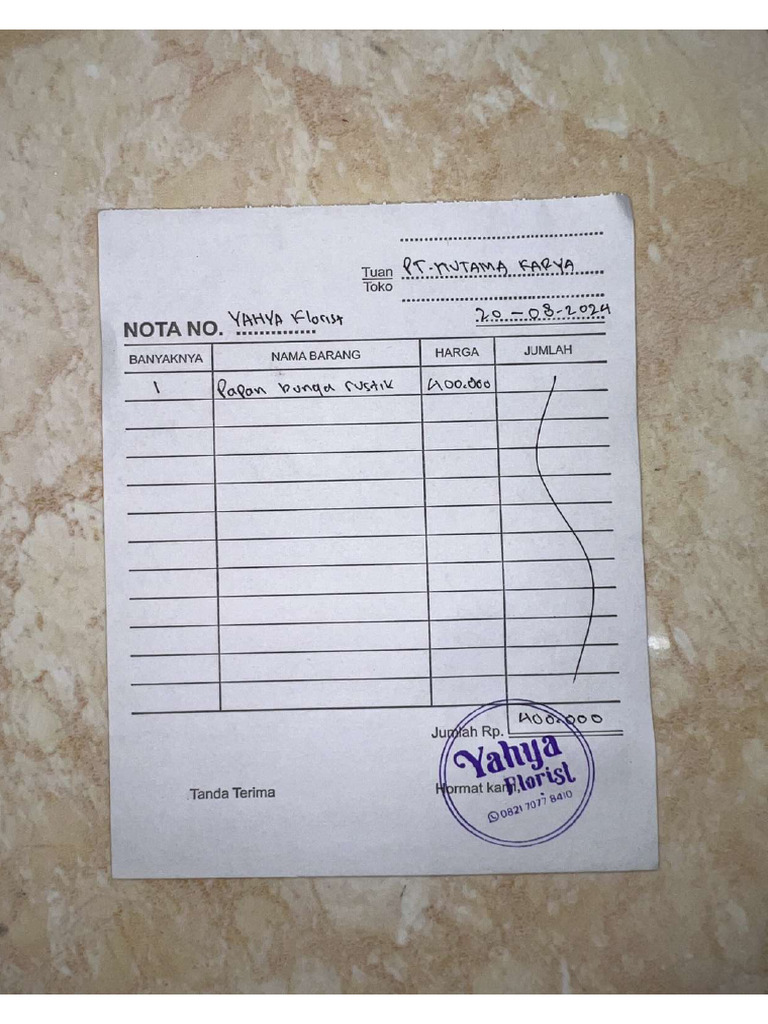 Tuan PT. HUTAMA KARYA
Toko
NOTA NO. YAHYA Florist 20-08-2024
BANYAKNYA NAMA BARANG HARGA JUMLAH
1 Papan bunga rustik 400.000
Jumlah Rp. 400.000
Tanda Terima Hormat kami,
Yahya
Florist
0821 7077 8410